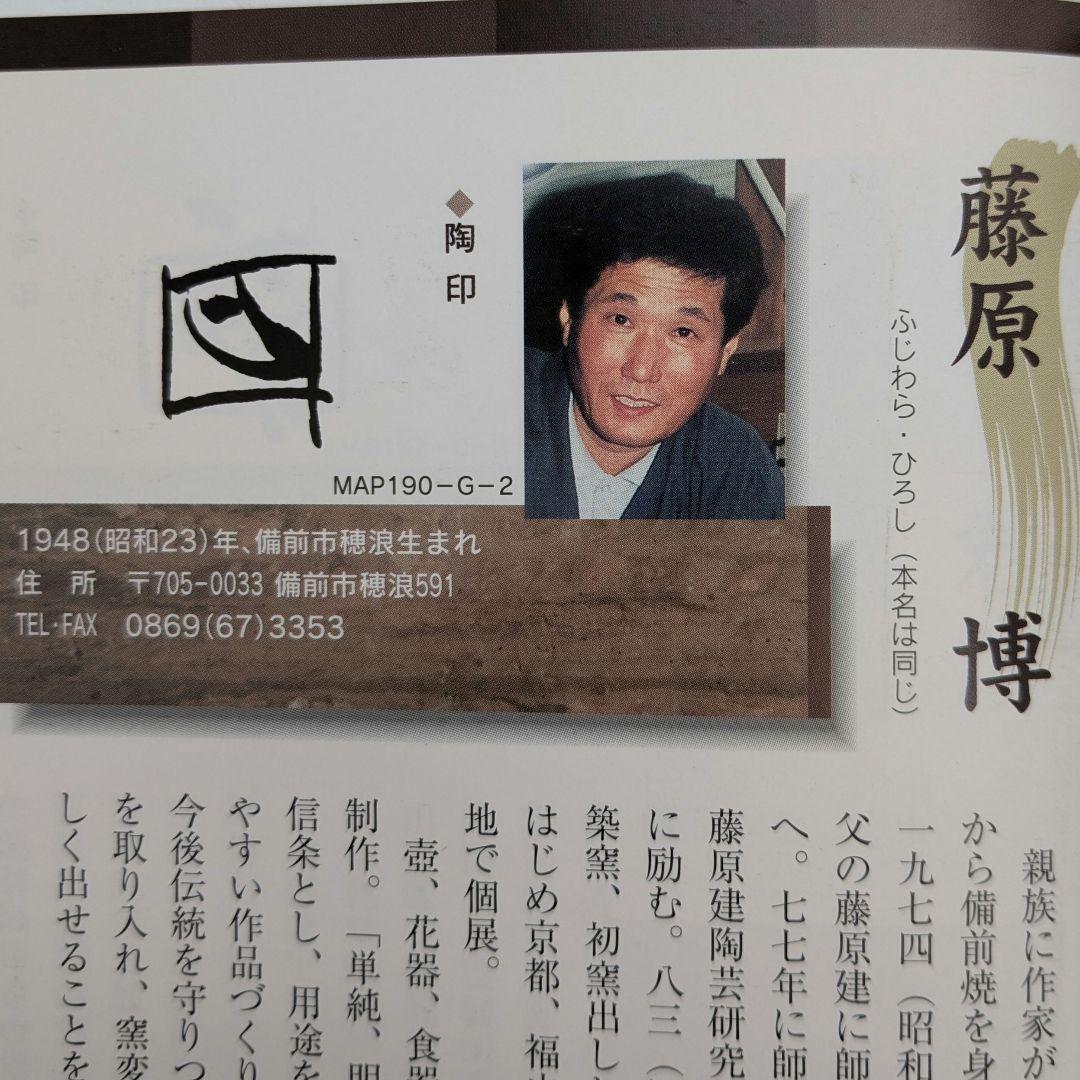 藤原 博
ふじわら・ひろし（本名は同じ）
◆陶印
MAP190－G－2
1948（昭和23）年、備前市穂浪生まれ
住 所 〒705-0033 備前市穂浪591
TEL・FAX 0869（67）3353
親族に作家が
から備前焼を身
一九七四（昭和
父の藤原建に師
へ。七七年に師
藤原建陶芸研究
に励む。八三（
築窯、初窯出し
はじめ京都、福
地で個展。
壺、花器、食器
制作。「単純、明
信条とし、用途を
やすい作品づくり
今後伝統を守りつ
を取り入れ、窯変
しく出せることを